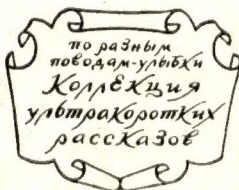 по разным
поводам-улыбки
Коллекция
ультракоротких
рассказов